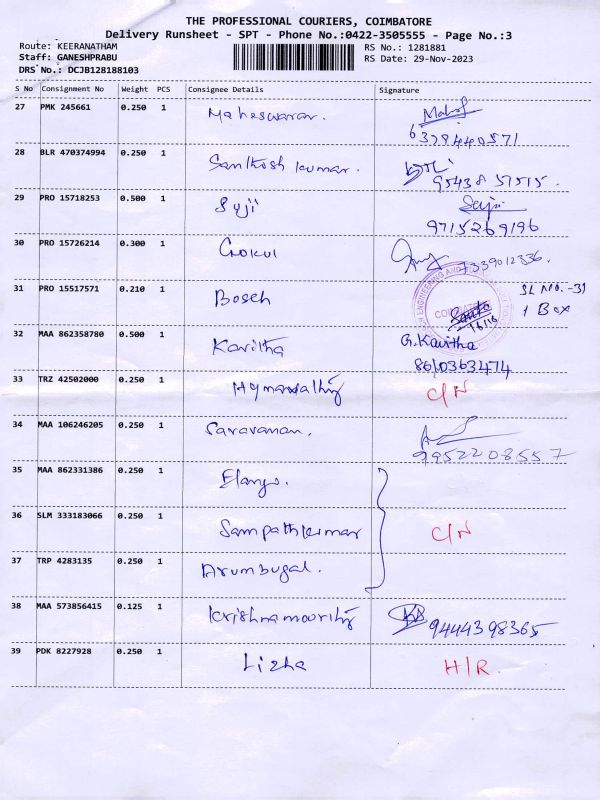 THE PROFESSIONAL COURIERS, COIMBATORE
Delivery Runsheet - SPT - Phone No.:0422-3505555 - Page No.:3
Route: KEERANATHAM
RS No.: 1281881
Staff: GANESHPRABU
RS Date: 29-Nov-2023
DRS No.: DCJB128188103
S No Consignment No Weight PCS Consignee Details Signature
27 PMK 245661 0.250 1 Maheswaran.
6379440571
28 BLR 470374994 0.250 1 Santhosh kumar.
9543857515.
29 PRO 15718253 0.500 1 Suji Suji
9715269196
30 PRO 15726214 0.300 1 Gokul 7339012336.
31 PRO 15517571 0.210 1 Bosch SL No. -31
1 Box
32 MAA 862358780 0.500 1 Kavitha G.Kavitha
8610363474
33 TRZ 42502000 0.250 1 C/N
34 MAA 106246205 0.250 1 Saravanan.
9952208557
35 MAA 862331386 0.250 1 Elango.
36 SLM 333183066 0.250 1 Sampathkumar C/N
37 TRP 4283135 0.250 1 Arumbugal.
38 MAA 573856415 0.125 1 Krishnamoorthy 9444398365
39 PDK 8227928 0.250 1 Lizha H/R.